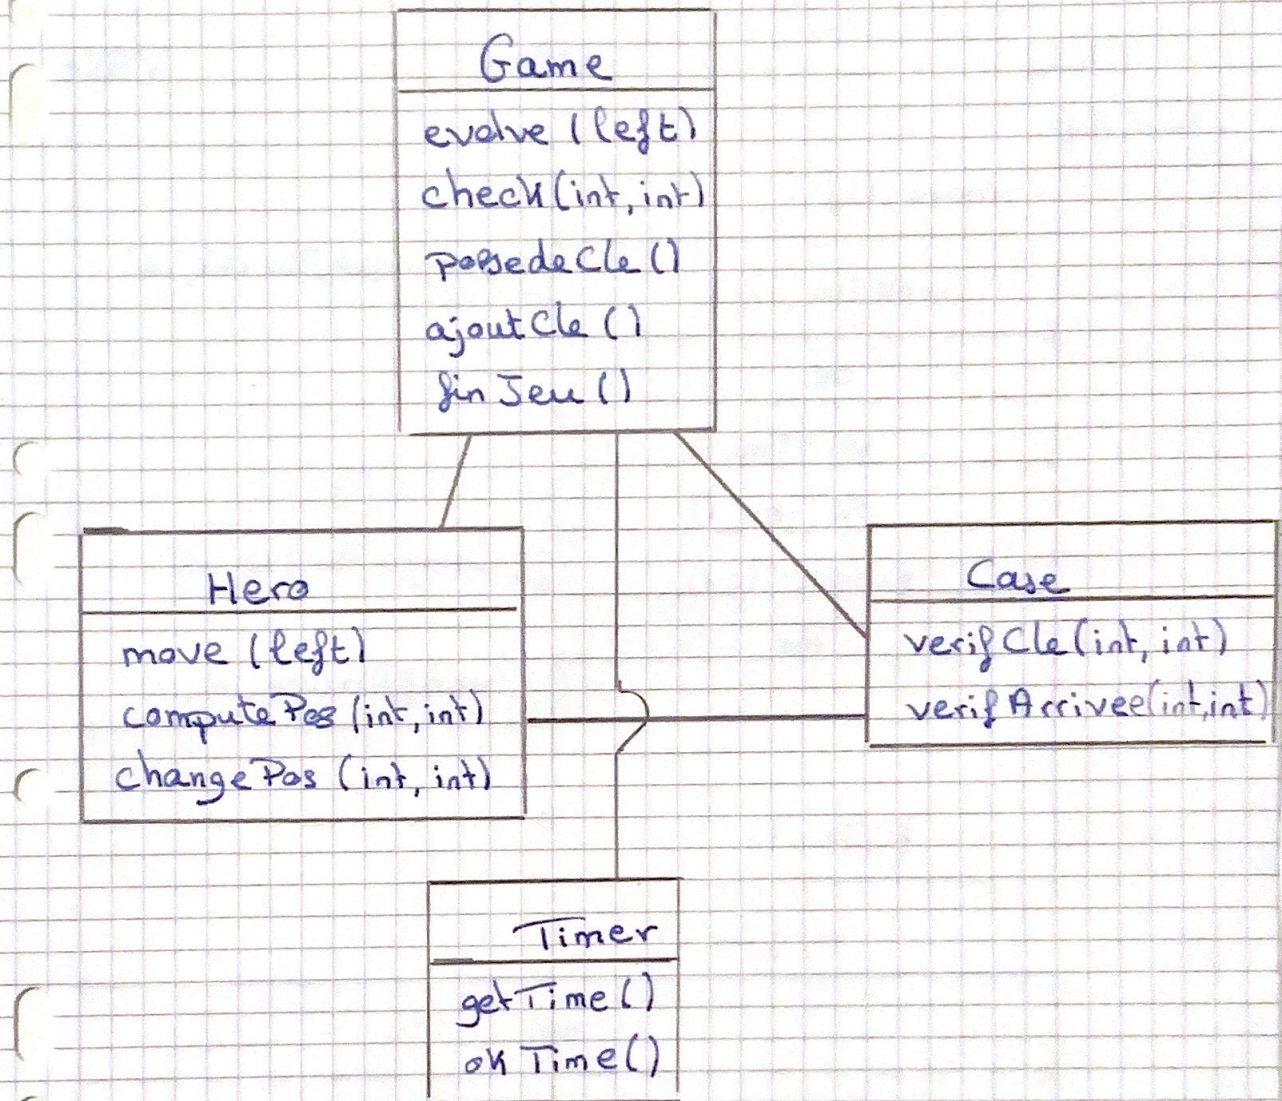 Game
evolve (left)
check(int, int)
possedeCle ()
ajoutCle ()
finJeu ()
Hero
move (left)
computePos (int, int)
changePos (int, int)
Case
verifCle (int, int)
verifArrivee(int,int)
Timer
getTime ()
okTime ()